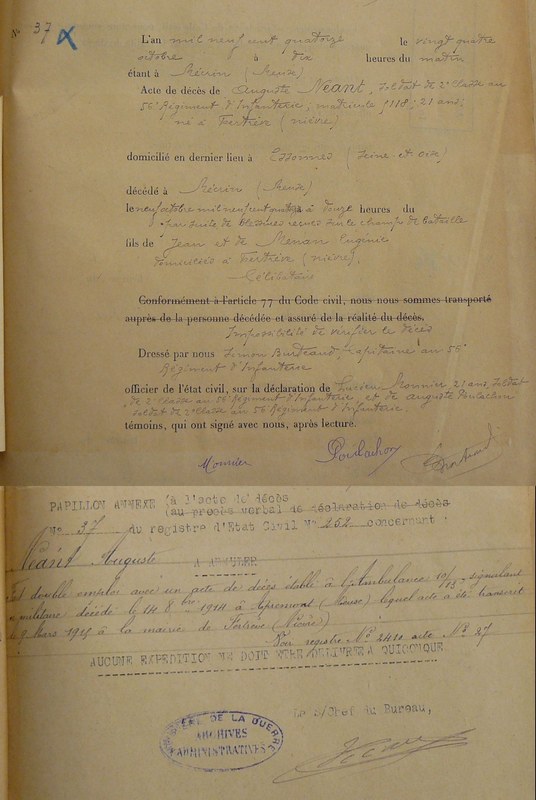 N° 37
L'an mil neuf cent quatorze le vingt quatre
octobre à dix heures du matin
étant à (Meuse)
Acte de décès de Auguste Neant, soldat de 2e classe au
56e Régiment d'Infanterie, matricule 21 ans,
né à (Nièvre)
domicilié en dernier lieu à Essonnes (Seine et Oise)
décédé à (Meuse)
le neuf octobre mil neuf cent quatorze à douze heures du
par suite de blessures reçues sur le champ de bataille
fils de Jean et de Menan Eugénie
domiciliés à (Nièvre),
Célibataire
Conformément à l'article 77 du Code civil, nous nous sommes transporté
auprès de la personne décédée et assuré de la réalité du décès.
Impossibilité de vérifier le décès
Dressé par nous Simon Capitaine au 56e
Régiment d'Infanterie
officier de l'état civil, sur la déclaration de Lucien Mounier 21 ans, soldat
de 2e classe au 56e Régiment d'Infanterie et de Auguste
soldat de 2e classe au 56e Régiment d'Infanterie
témoins, qui ont signé avec nous, après lecture.
Mounier
PAPILLON ANNEXE (à l'acte de décès
(au procès verbal de déclaration de décès
N° 37 du registre d'Etat Civil N° 252 concernant :
Néant Auguste
A ANNULER
Fait double emploi avec un acte de décès établi à l'Ambulance signalant
ce militaire décédé le 14 8bre 1914 à Apremont (Meuse) lequel acte a été transcrit
le 9 Mars 1915 à la mairie de (Nièvre)
Voir registre N° acte N° 27
AUCUNE EXPEDITION NE DOIT ETRE DELIVREE A QUICONQUE
Le S/Chef du Bureau,
MINISTERE DE LA GUERRE
ARCHIVES
ADMINISTRATIVES